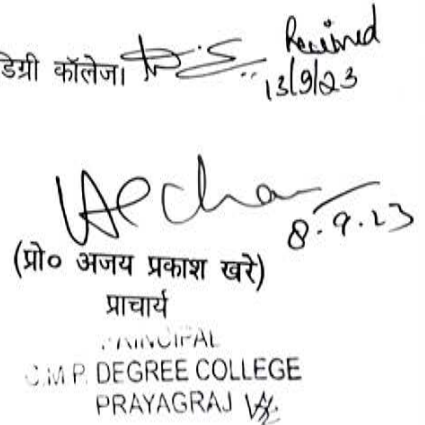 Received
डिग्री कॉलेज।
13/9/23
8.9.23
(प्रो० अजय प्रकाश खरे)
प्राचार्य
PRINCIPAL
C.M.P. DEGREE COLLEGE
PRAYAGRAJ